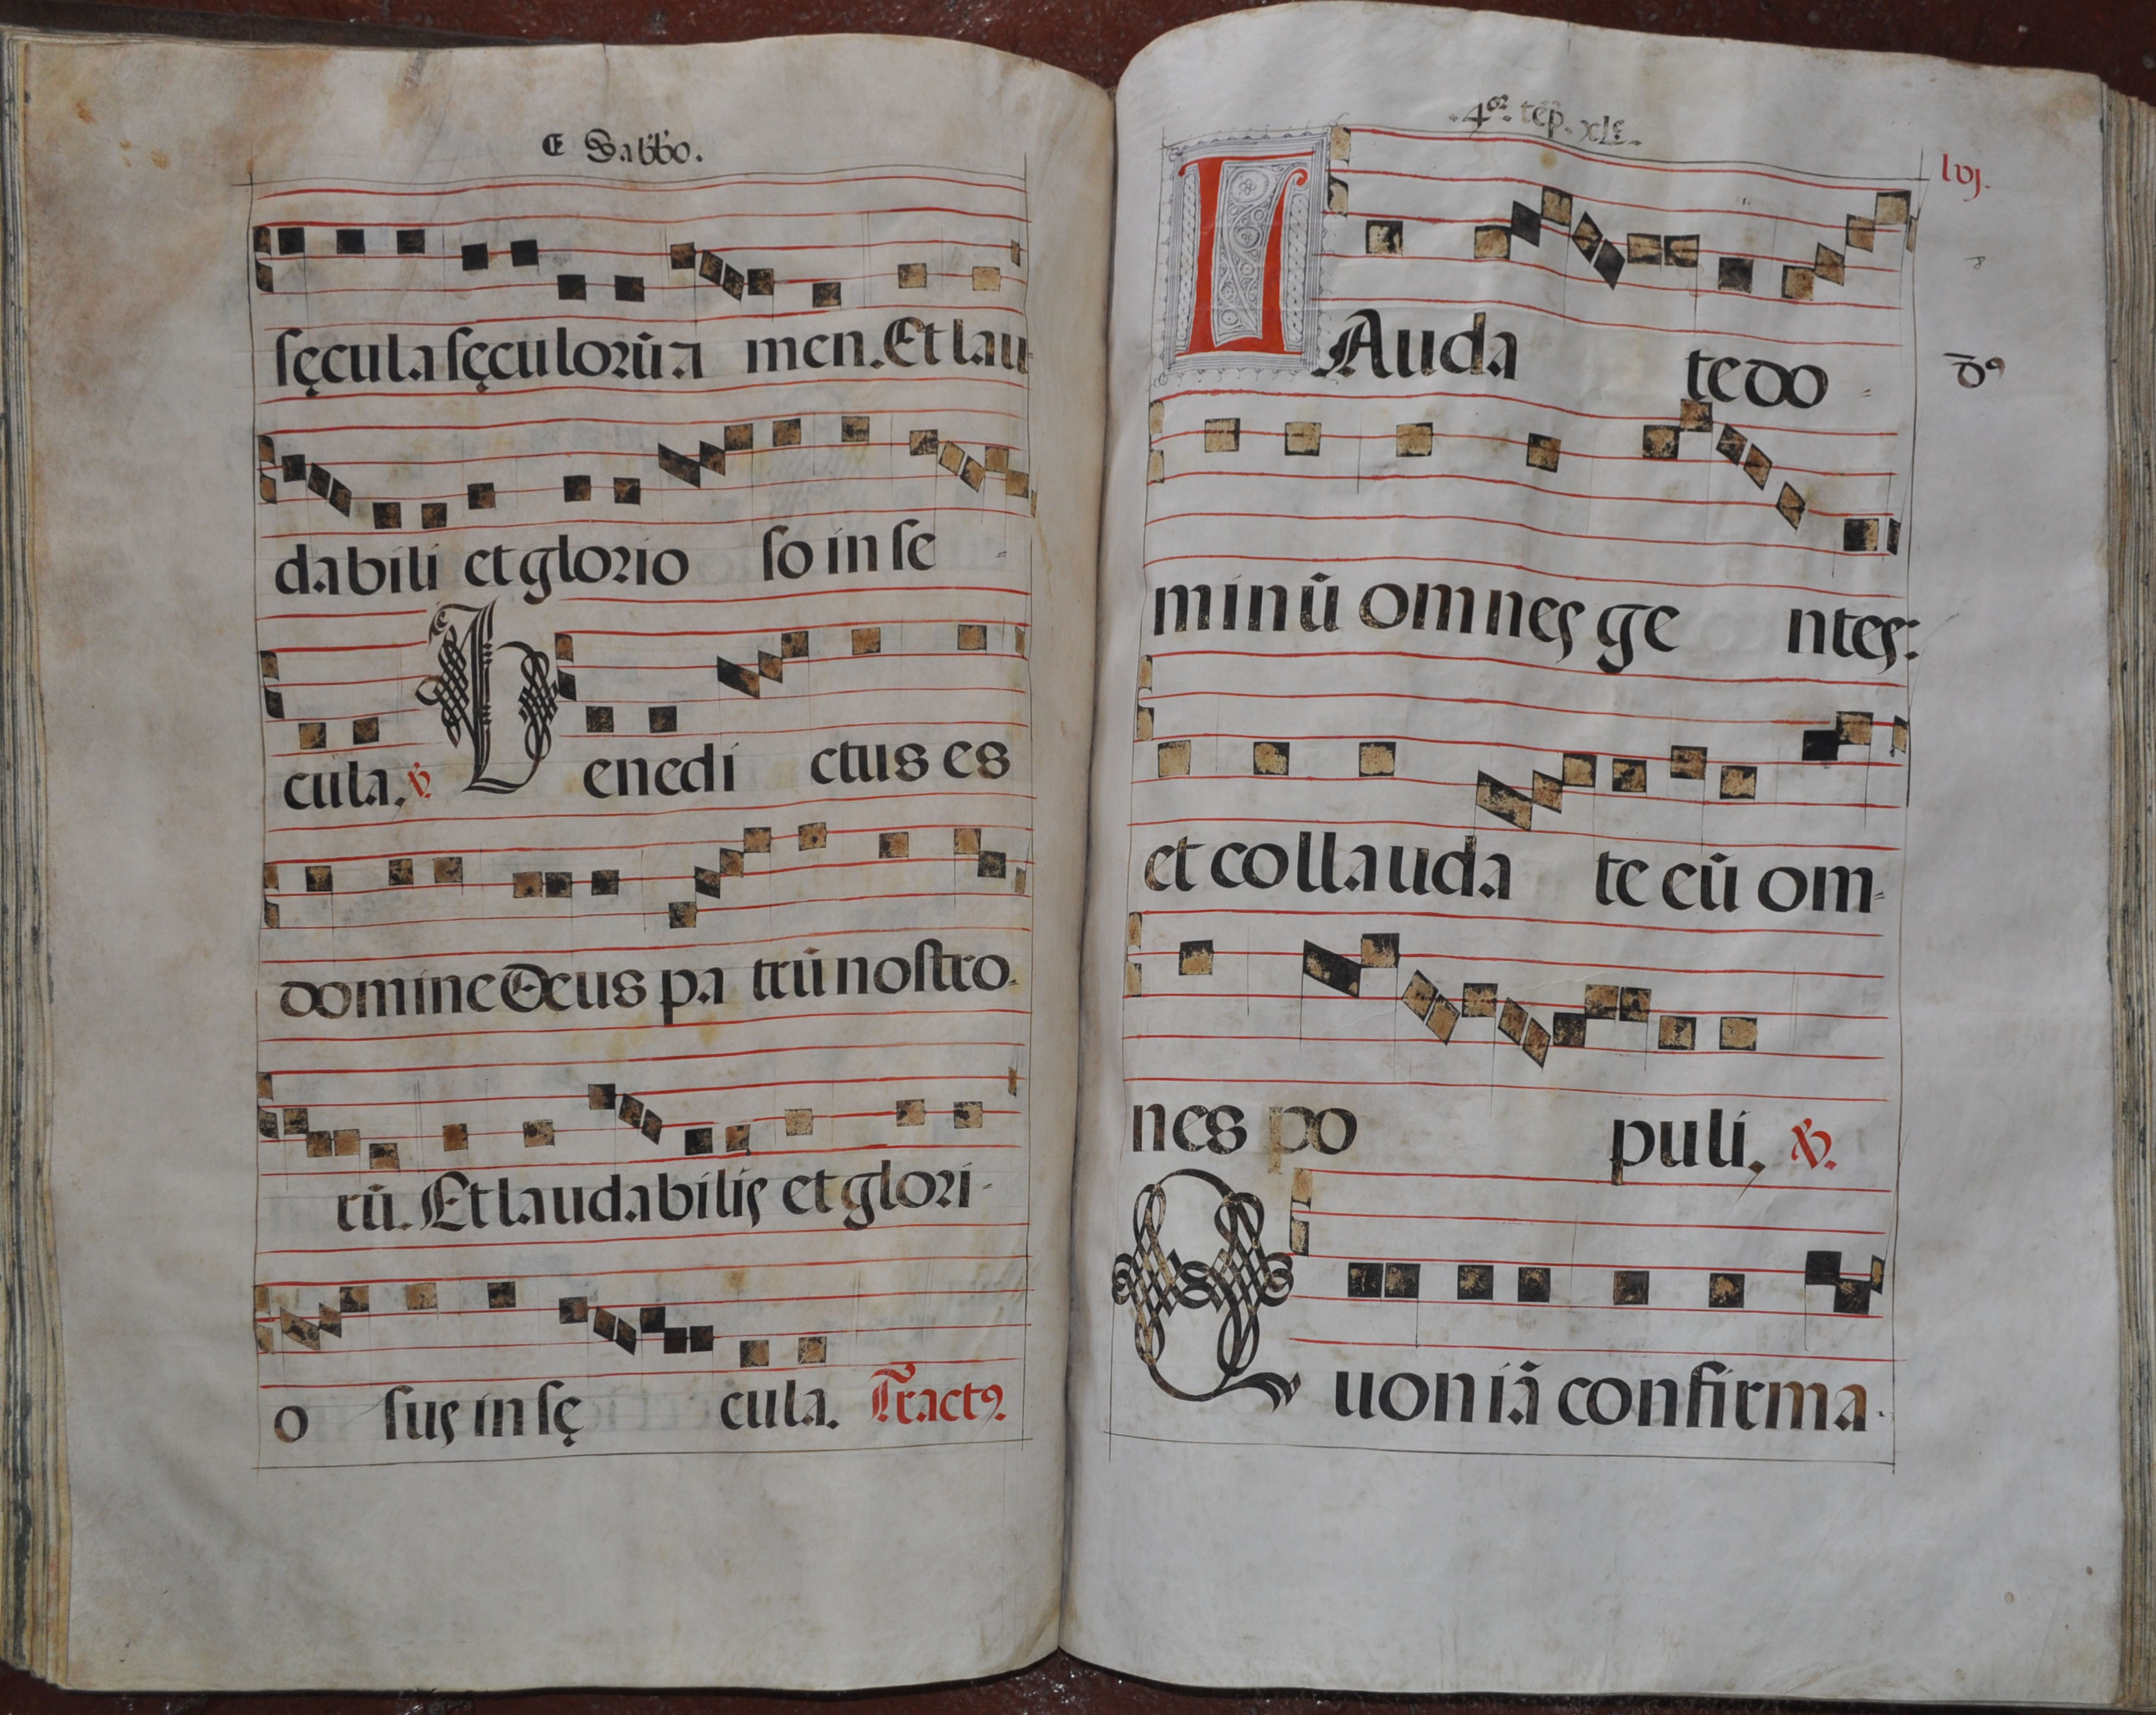 E Sabbo.
sęcula sęculorũ a men. Et lau
dabili et glorio so in se
cula. ℣. Benedi ctus es
domine Deus pa trũ nostro
rũ. Et laudabilis et glori-
o sus in sę cula. Tractꝰ.
.4or. tēp. xle.
lvj.
LAuda te do
minũ omnes ge ntes:
et collauda te eũ om
nes po puli. ℣.
Quoniã confirma.